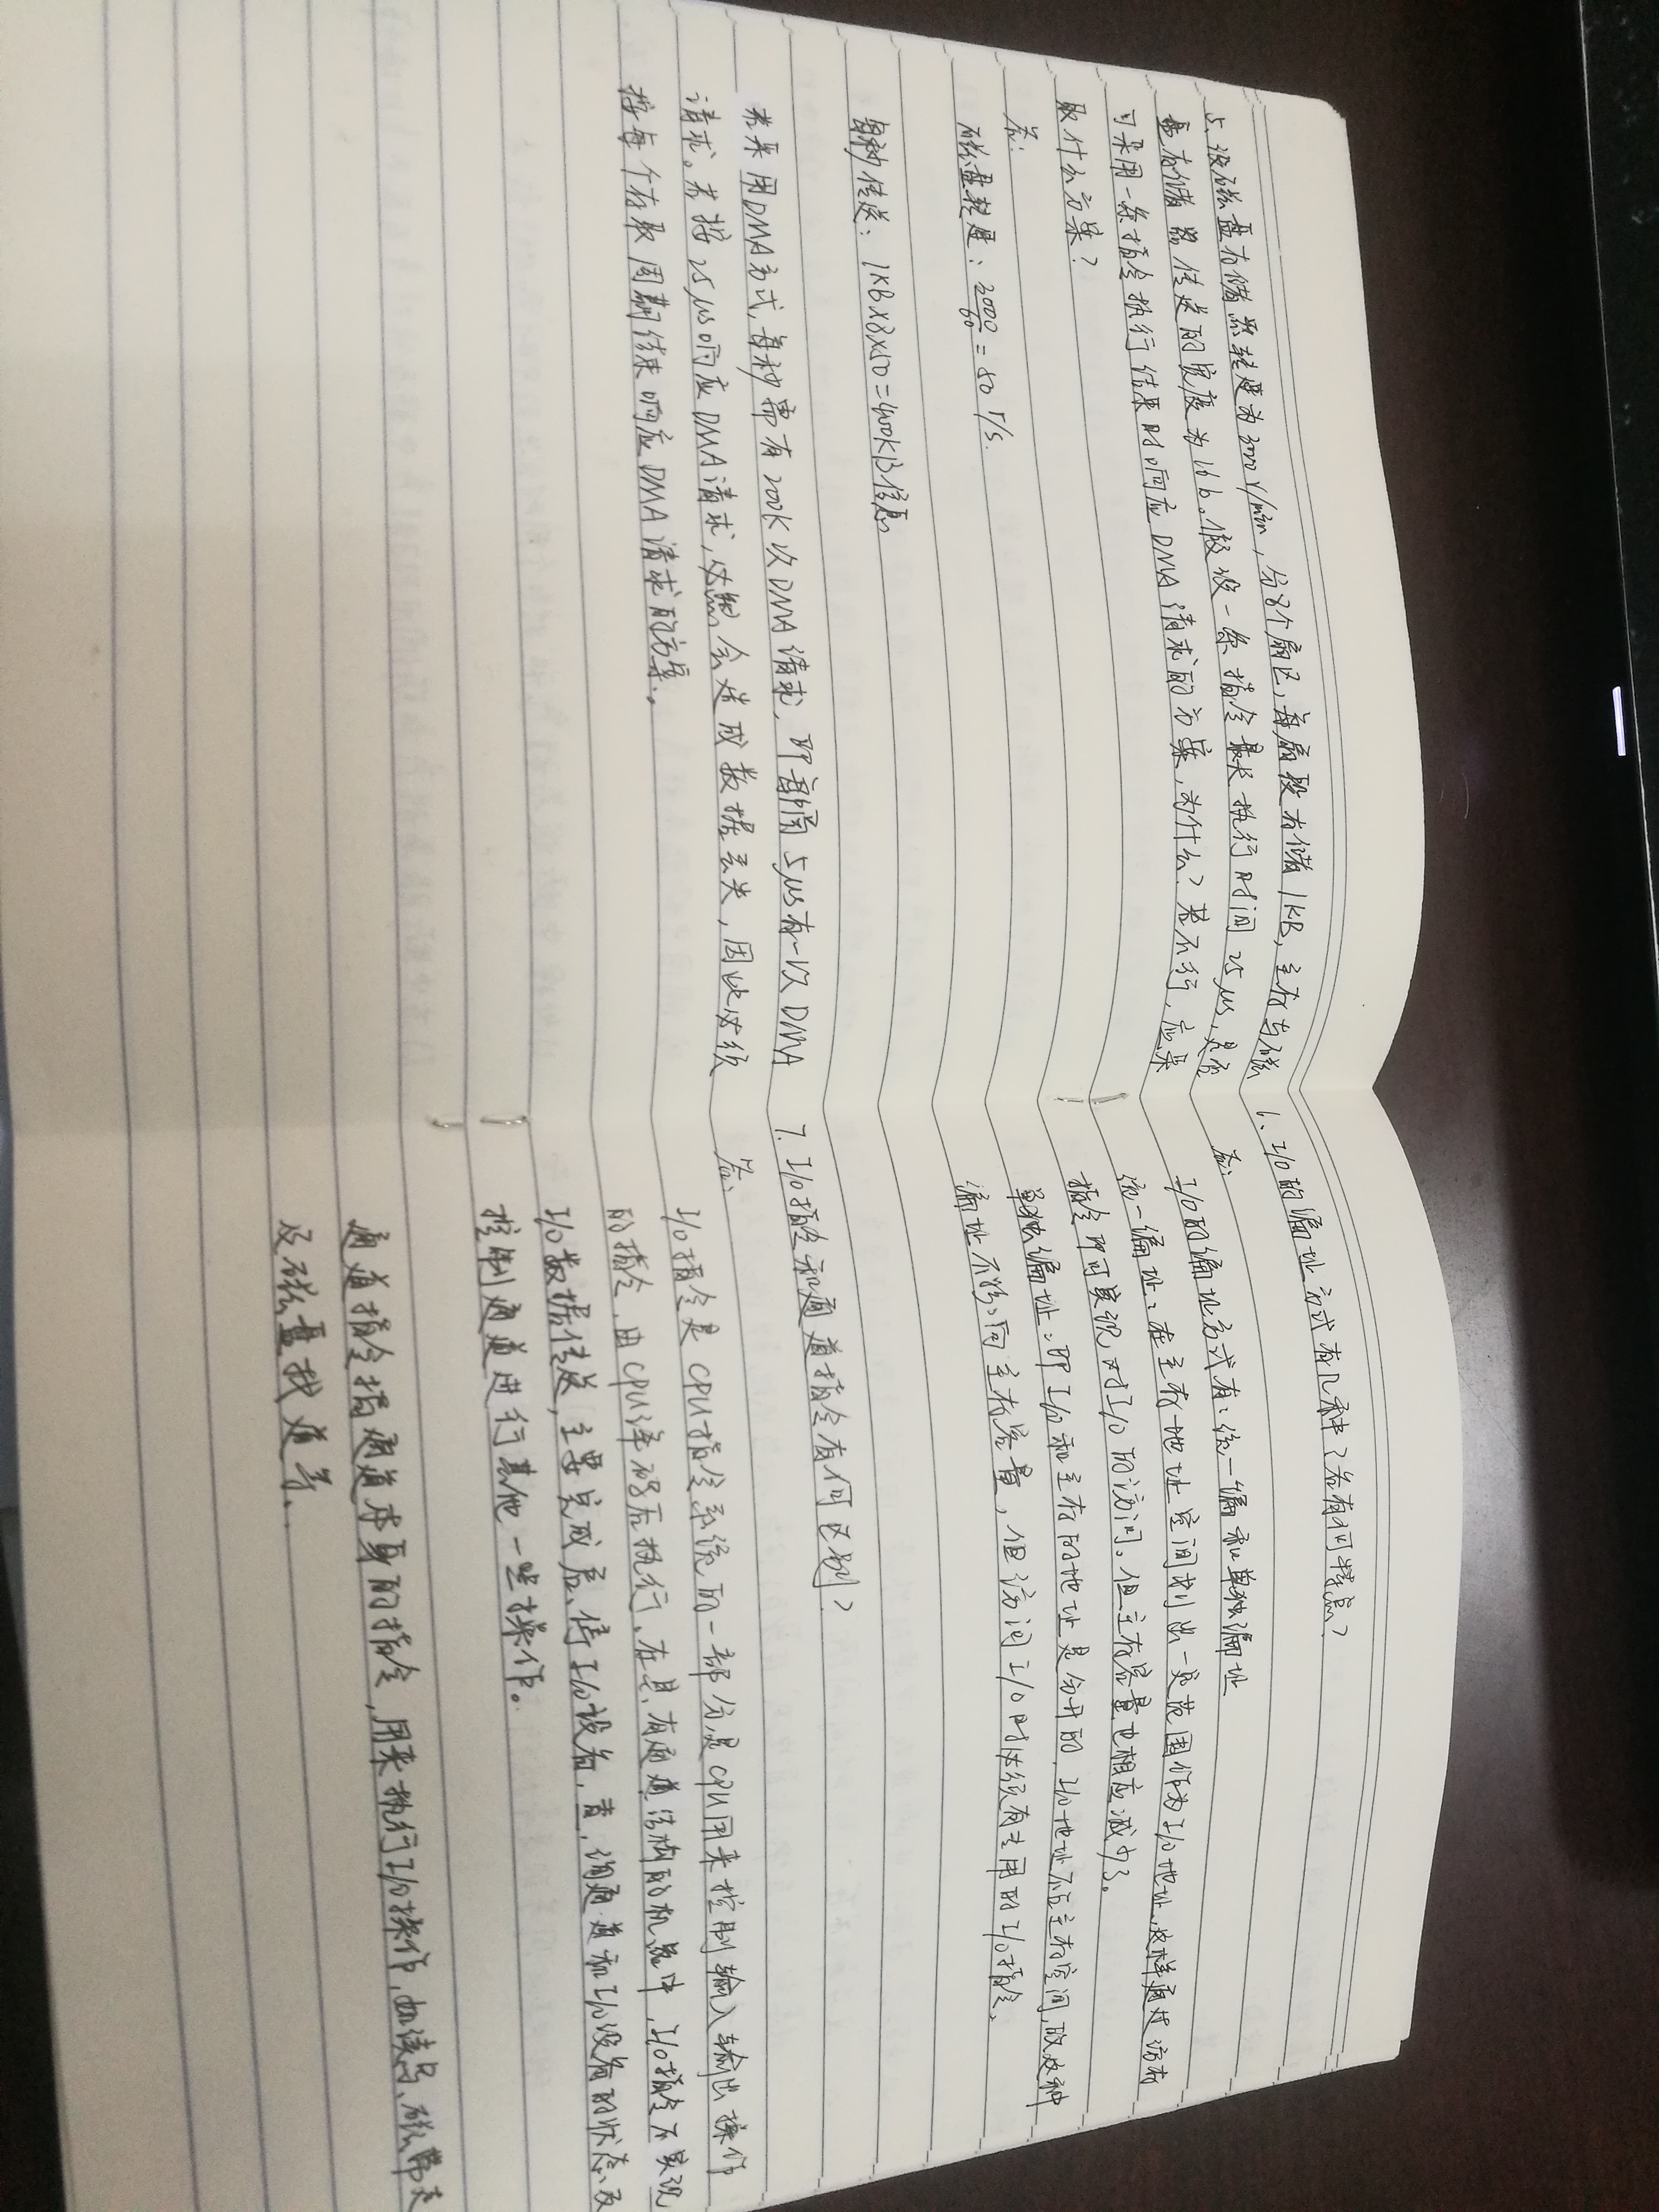 5、设磁盘存储器转速为3000r/min，分8个扇区，每扇段存储1KB，主存与磁
盘存储器传送的宽度为16b。假设一条指令最长执行时间25μs，是否
可采用一条指令执行结束时响应DMA请求的方案，为什么？若不行，应采
取什么方案？
答：
磁盘转速：3000/60=50r/s.
每秒传送：1KB×8×50=400KB信息
若采用DMA方式，每秒需有200K次DMA请求，即每隔5μs有一次DMA
请求。若按25μs响应DMA请求，必然会造成数据丢失，因此必须
按每个存取周期结束响应DMA请求的方案。
6、I/O的编址方式有几种？各有何特点？
答：
I/O的编址方式有：统一编和单独编址
统一编址：在主存地址空间划出一定范围作为I/O地址，这样通过访存
指令即可实现对I/O的访问。但主存容量也相应减少了。
单独编址：即I/O和主存的地址是分开的，I/O地址不占主存空间，故这种
编址不影响主存容量，但访问I/O时必须有专用的I/O指令、
7、I/O指令和通道指令有何区别？
答：
I/O指令是CPU指令系统的一部分，是CPU用来控制输入输出操作
的指令，由CPU译码后执行、在具有通道结构的机器中，I/O指令不实现
I/O数据传送，主要完成启、停I/O设备，查询通道和I/O设备的状态，及
控制通道进行其他一些操作。
通道指令指通道本身的指令，用来执行I/O操作，如读写、磁带走
及磁盘找道等、